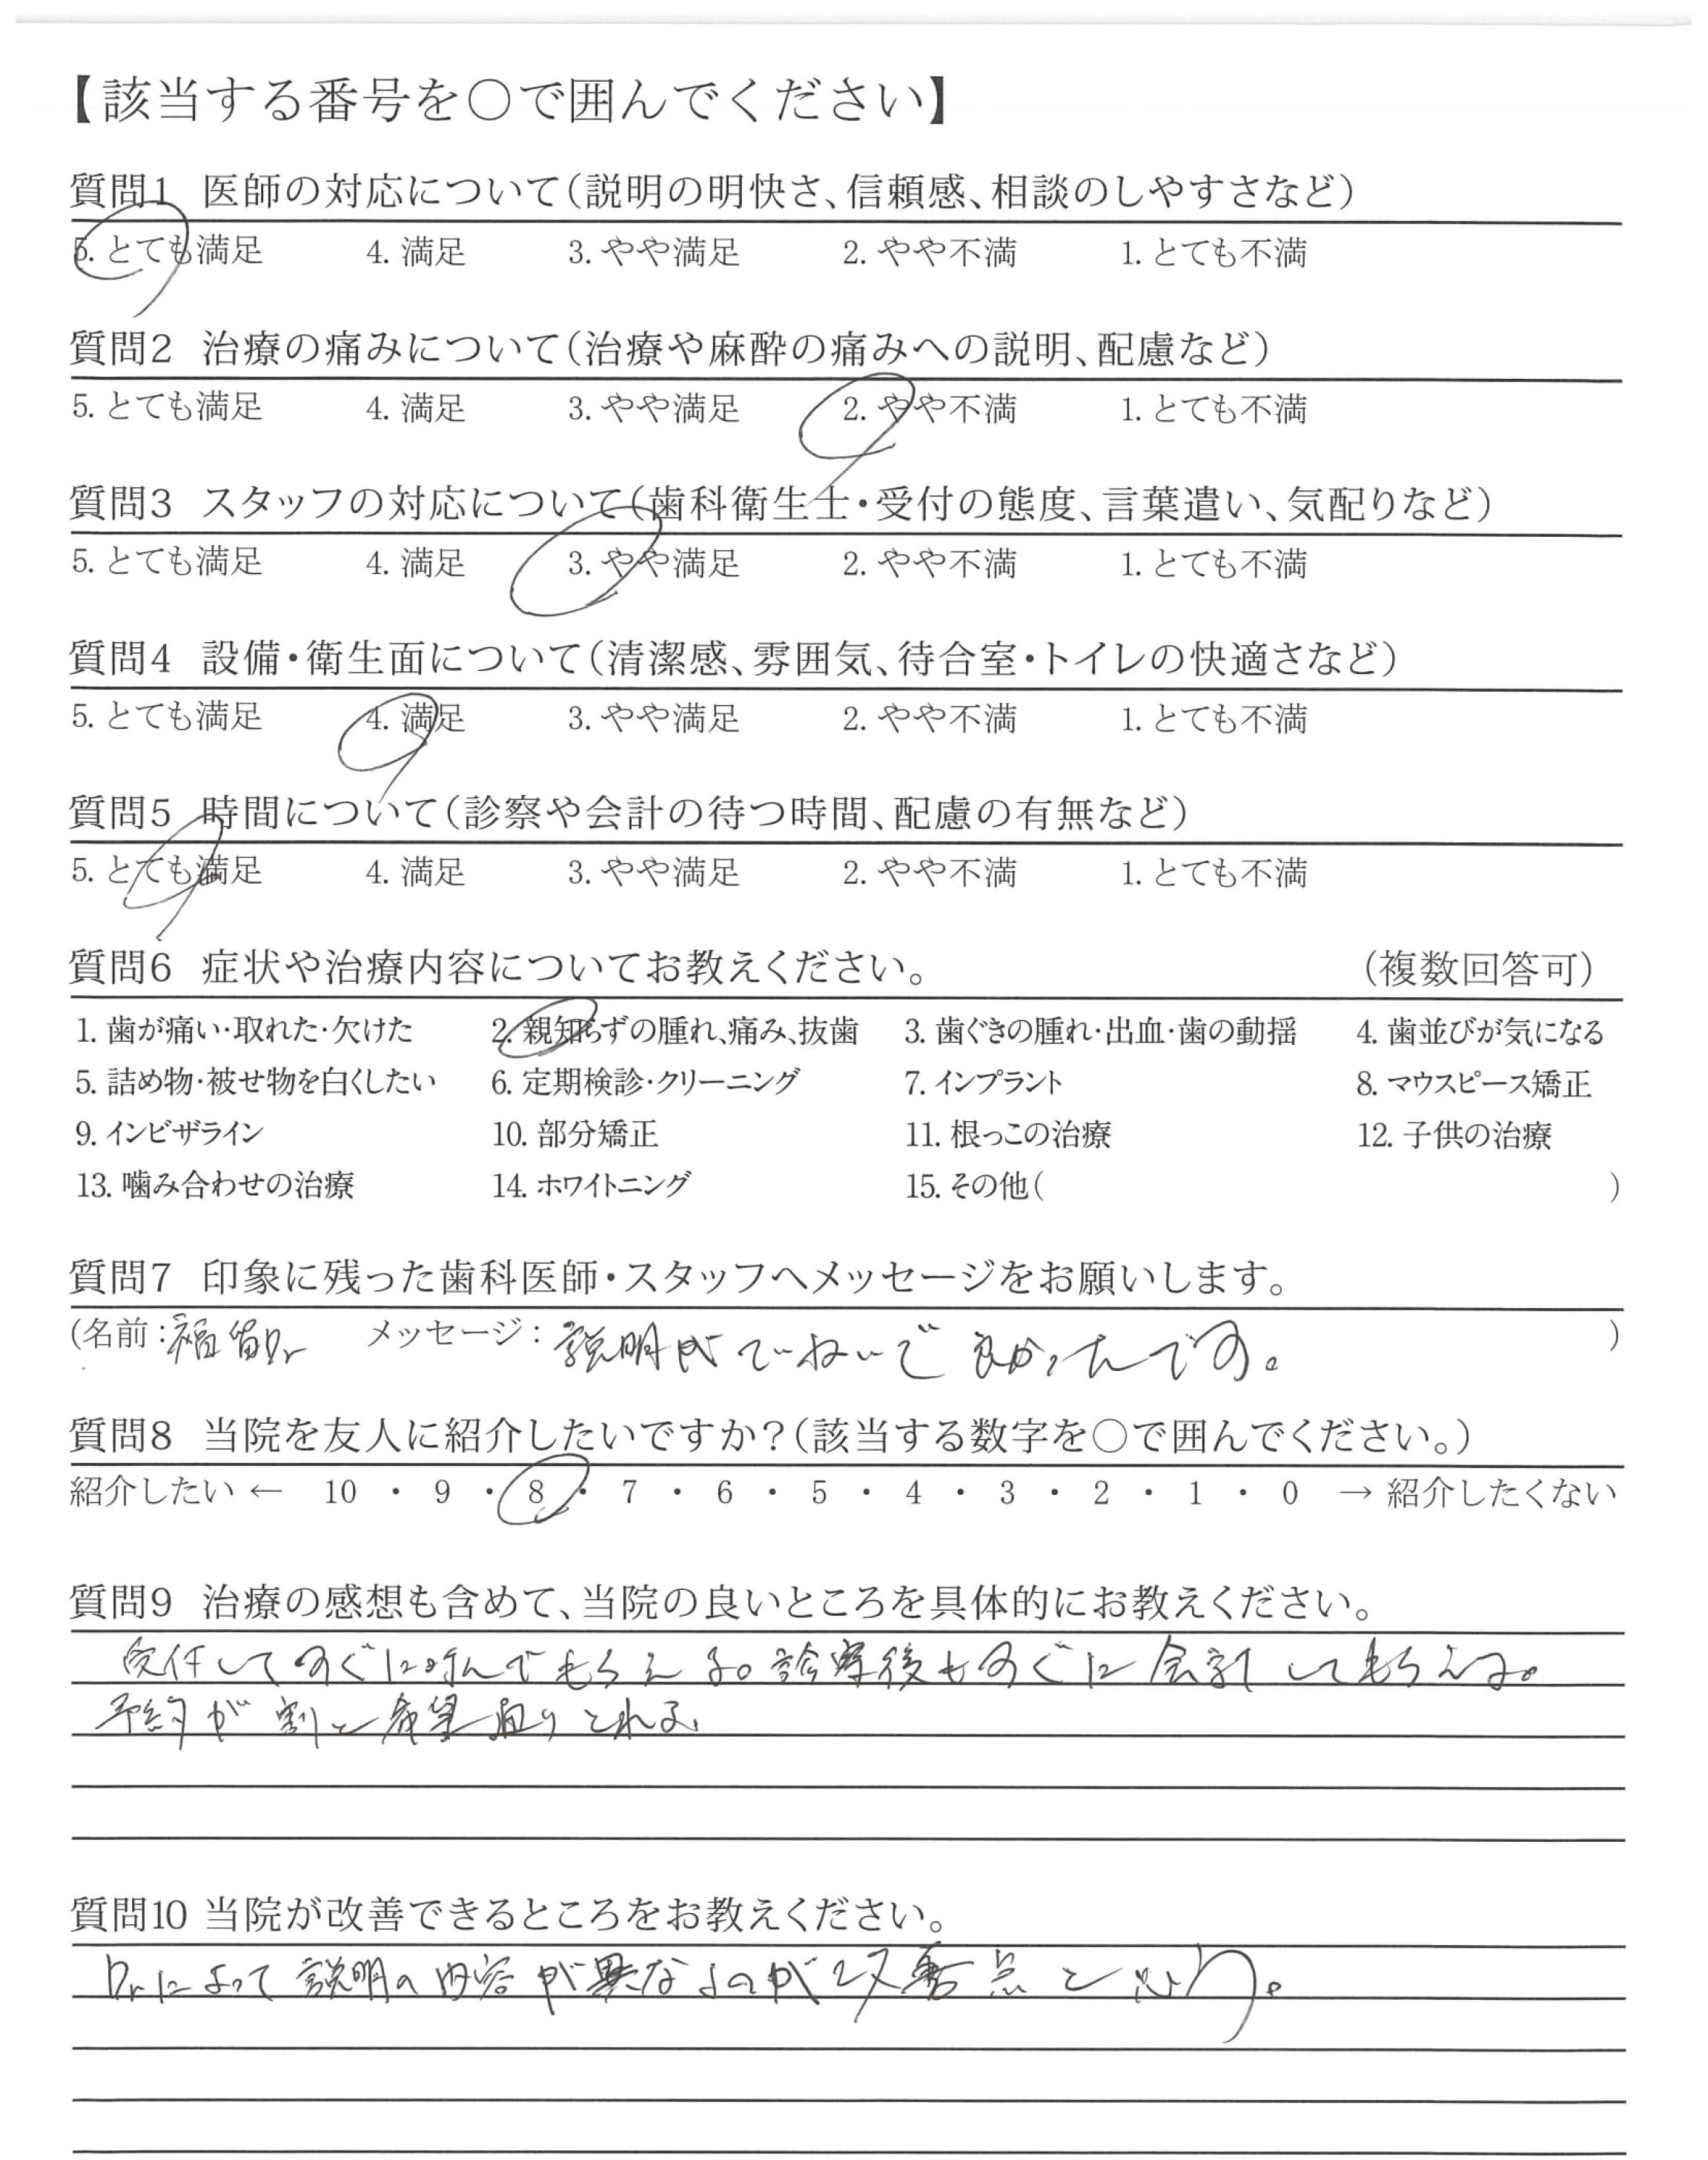 【該当する番号を○で囲んでください】
質問1 医師の対応について(説明の明快さ、信頼感、相談のしやすさなど)
5. とても満足 4. 満足 3. やや満足 2. やや不満 1. とても不満
質問2 治療の痛みについて(治療や麻酔の痛みへの説明、配慮など)
5. とても満足 4. 満足 3. やや満足 2. やや不満 1. とても不満
質問3 スタッフの対応について(歯科衛生士・受付の態度、言葉遣い、気配りなど)
5. とても満足 4. 満足 3. やや満足 2. やや不満 1. とても不満
質問4 設備・衛生面について(清潔感、雰囲気、待合室・トイレの快適さなど)
5. とても満足 4. 満足 3. やや満足 2. やや不満 1. とても不満
質問5 時間について(診察や会計の待つ時間、配慮の有無など)
5. とても満足 4. 満足 3. やや満足 2. やや不満 1. とても不満
質問6 症状や治療内容についてお教えください。 (複数回答可)
1. 歯が痛い・取れた・欠けた 2. 親知らずの腫れ、痛み、抜歯 3. 歯ぐきの腫れ・出血・歯の動揺 4. 歯並びが気になる
5. 詰め物・被せ物を白くしたい 6. 定期検診・クリーニング 7. インプラント 8. マウスピース矯正
9. インビザライン 10. 部分矯正 11. 根っこの治療 12. 子供の治療
13. 噛み合わせの治療 14. ホワイトニング 15. その他( )
質問7 印象に残った歯科医師・スタッフへメッセージをお願いします。
(名前: メッセージ: 説明がていねいで良かったです。 )
質問8 当院を友人に紹介したいですか?(該当する数字を○で囲んでください。)
紹介したい ← 10 ・ 9 ・ 8 ・ 7 ・ 6 ・ 5 ・ 4 ・ 3 ・ 2 ・ 1 ・ 0 → 紹介したくない
質問9 治療の感想も含めて、当院の良いところを具体的にお教えください。
受付してすぐに呼んでもらえる。診察後もすぐに会計してもらえる。
予約が割と希望通りとれる。
質問10 当院が改善できるところをお教えください。
Drによって説明の内容が異なるのが改善点と思う。